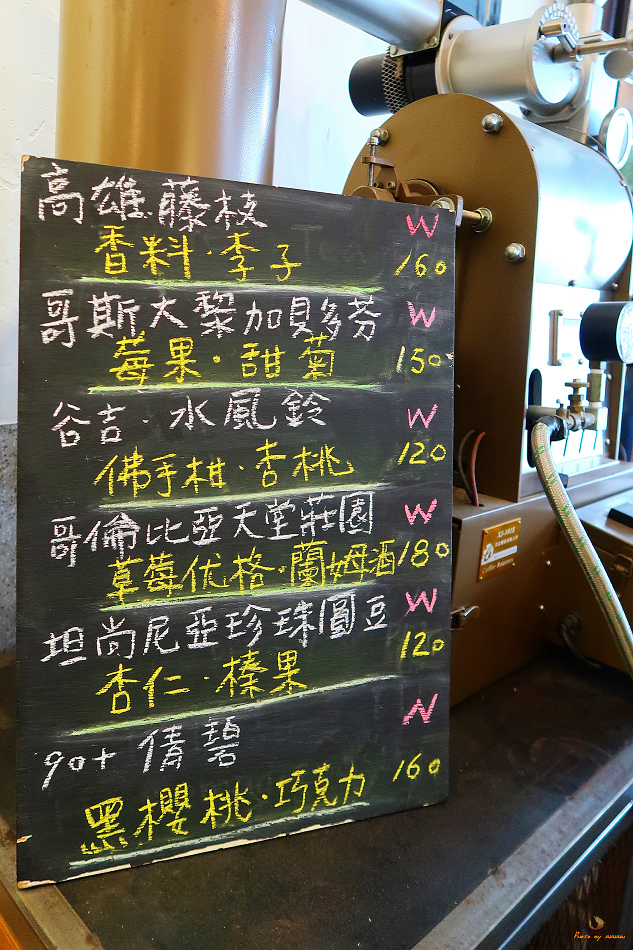 高雄.藤枝 W
香料·李子 160
哥斯大黎加貝多芬 W
莓果·甜菊 150
谷吉·水風鈴 W
佛手柑·杏桃 120
哥倫比亞天堂莊園 W
草莓优格·蘭姆酒 180
坦尚尼亞珍珠圓豆 W
杏仁·榛果 120
90+ 倩碧 N
黑櫻桃·巧克力 160